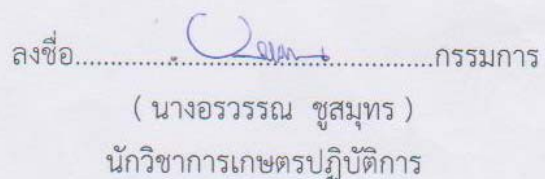 ลงชื่อ................................................กรรมการ
( นางอรวรรณ ชูสมุทร )
นักวิชาการเกษตรปฏิบัติการ